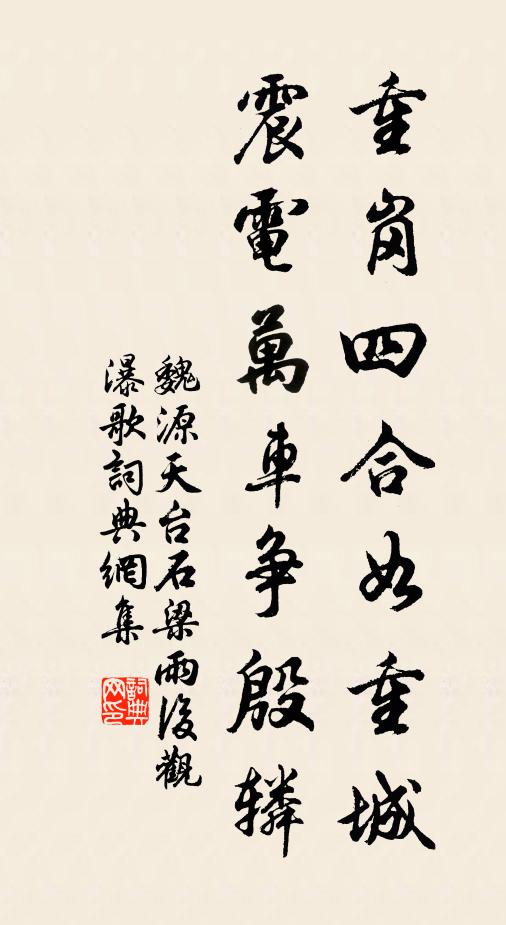 重岗四合如重城
震電萬車争殷轔
魏源天台石梁雨後觀
瀑歌詞典網集
詞典
网印